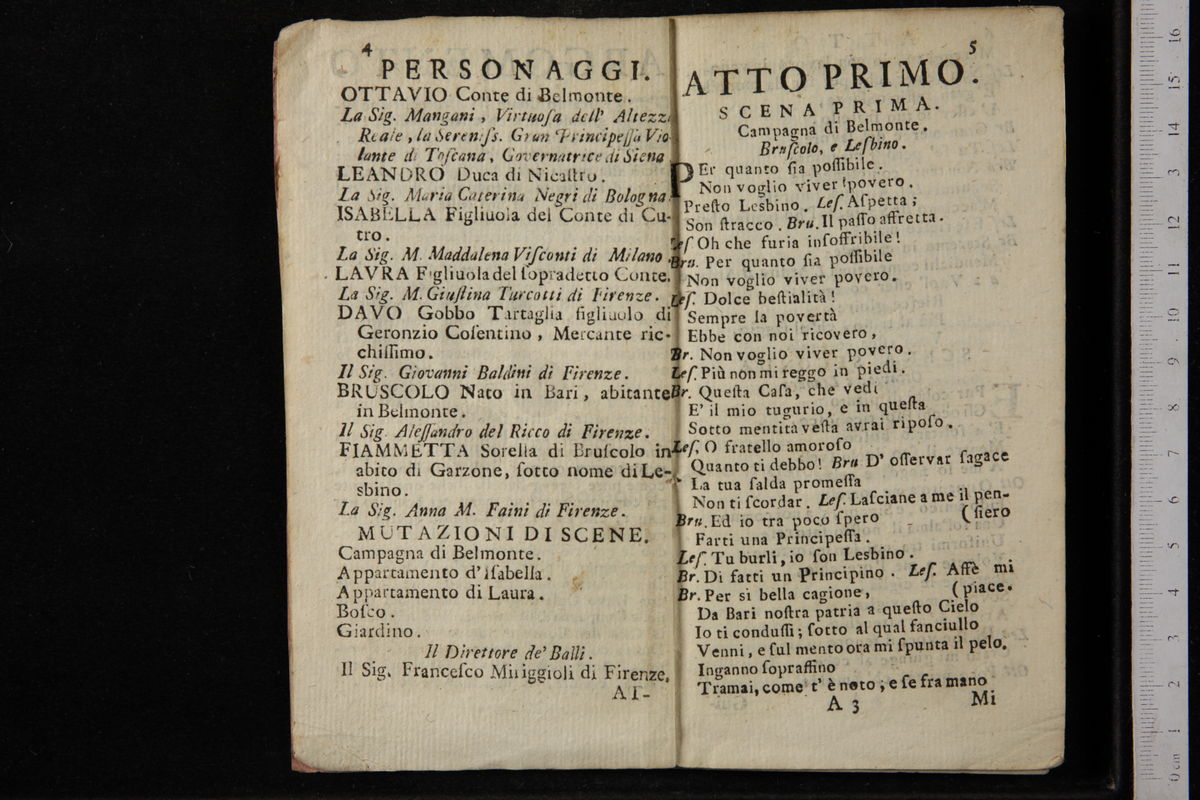 4
PERSONAGGI.
OTTAVIO Conte di Belmonte.
La Sig. Mangani, Virtuoſa dell' Altezz
Reale, la Sereniſs. Gran Principeſſa Vio
lante di Toſcana, Governatrice di Siena
LEANDRO Duca di Nicaſtro.
La Sig. Maria Caterina Negri di Bologna.
ISABELLA Figliuola del Conte di Cu-
tro.
La Sig. M. Maddalena Viſconti di Milano.
LAVRA Figliuola del ſopradetto Conte.
La Sig. M. Giuſtina Turcotti di Firenze.
DAVO Gobbo Tartaglia figliuolo di
Geronzio Coſentino, Mercante ric-
chiſſimo.
Il Sig. Giovanni Baldini di Firenze.
BRUSCOLO Nato in Bari, abitante
in Belmonte.
Il Sig. Aleſſandro del Ricco di Firenze.
FIAMMETTA Sorella di Bruſcolo in
abito di Garzone, ſotto nome di Le-
sbino.
La Sig. Anna M. Faini di Firenze.
MUTAZIONI DI SCENE.
Campagna di Belmonte.
Appartamento d'Iſabella.
Appartamento di Laura.
Boſco.
Giardino.
Il Direttore de' Balli.
Il Sig. Franceſco Miriggioli di Firenze.
AT-
5
ATTO PRIMO.
SCENA PRIMA.
Campagna di Belmonte.
Bruſcolo, e Leſbino.
PEr quanto ſia poſſibile.
Non voglio viver povero.
Preſto Lesbino. Leſ. Aſpetta;
Son ſtracco. Bru. Il paſſo affretta.
Leſ Oh che furia inſoffribile!
Bru. Per quanto ſia poſſibile
Non voglio viver povero.
Leſ. Dolce beſtialità!
Sempre la povertà
Ebbe con noi ricovero,
Br. Non voglio viver povero.
Leſ. Più non mi reggo in piedi.
Br. Queſta Caſa, che vedi
E' il mio tugurio, e in queſta
Sotto mentita veſta avrai ripoſo.
Leſ. O fratello amoroſo
Quanto ti debbo! Bru D' oſſervar ſagace
La tua ſalda promeſſa
Non ti ſcordar. Leſ. Laſciane a me il pen-
Bru. Ed io tra poco ſpero (ſiero
Farti una Principeſſa.
Leſ. Tu burli, io ſon Lesbino.
Br. Di fatti un Principino. Leſ. Affè mi
Br. Per si bella cagione, (piace.
Da Bari noſtra patria a queſto Cielo
Io ti conduſſi; ſotto al qual fanciullo
Venni, e ſul mento ora mi ſpunta il pelo.
Inganno ſopraffino
Tramai, come t' è noto; e ſe fra mano
A 3
Mi